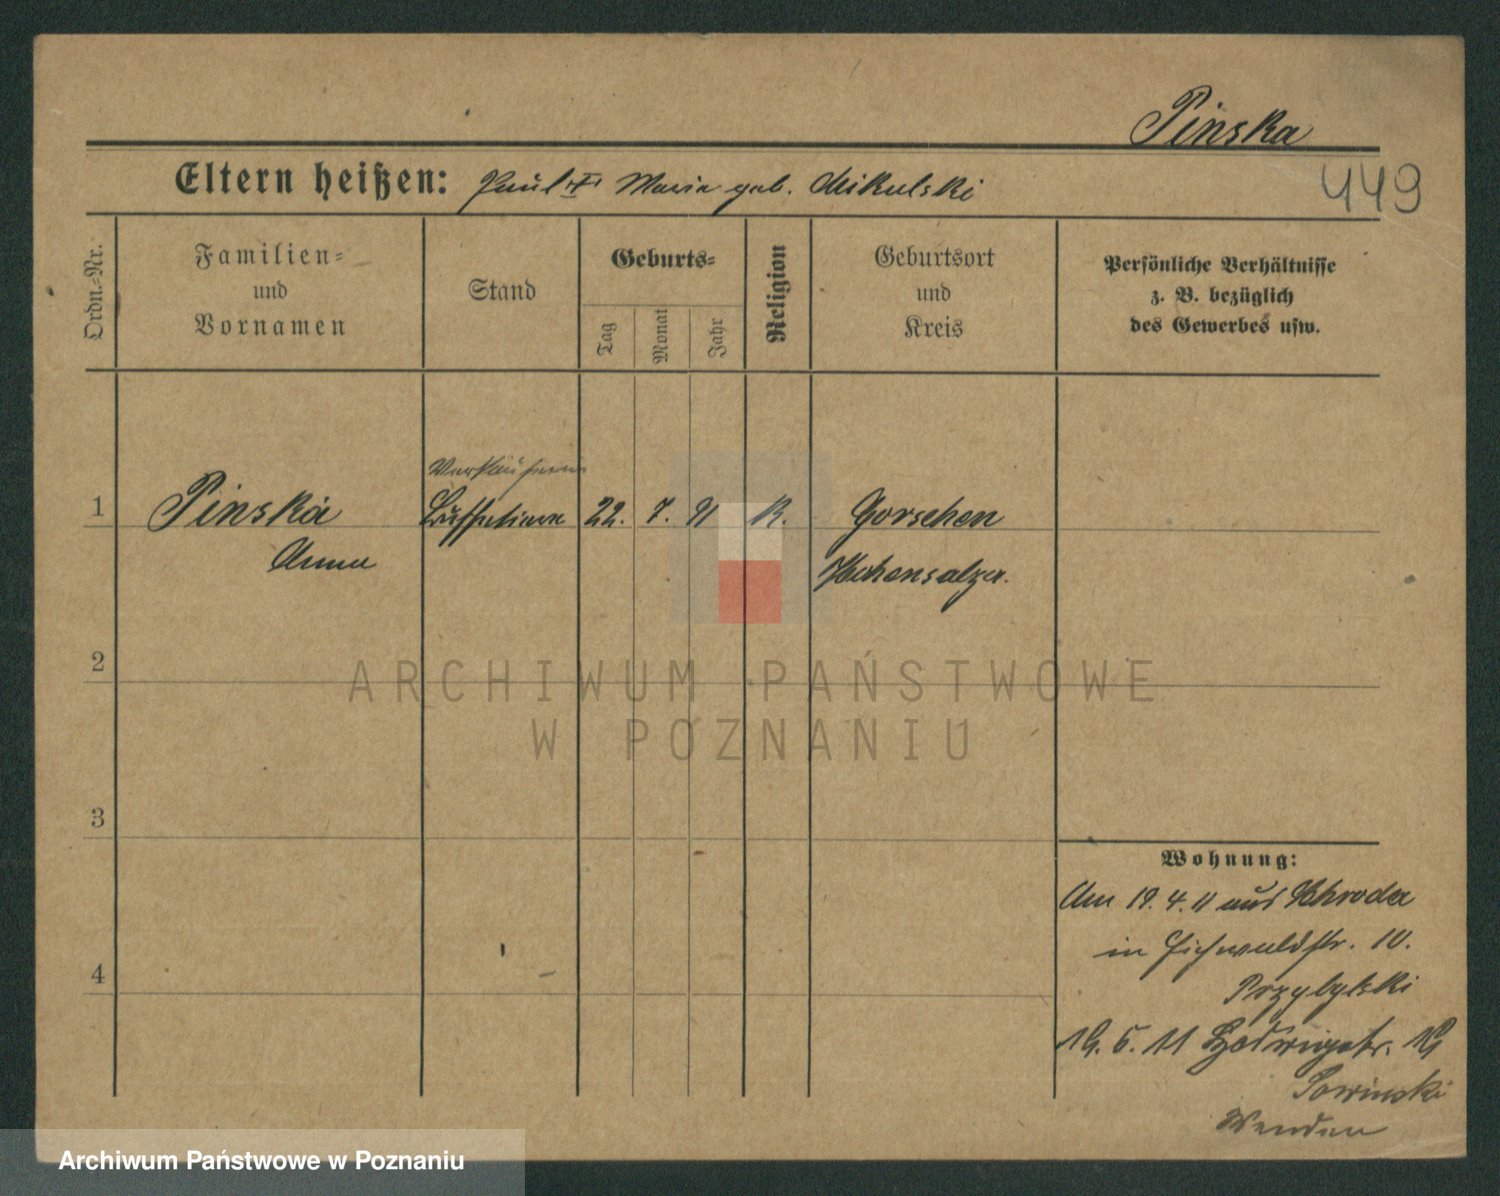 Pinska
Eltern heißen: Paul † Maria geb. Mikulski
449
Ordn.-Nr.
Familien-
und
Vornamen
Stand
Geburts-
Tag
Monat
Jahr
Religion
Geburtsort
und
Kreis
Persönliche Verhältnisse
z. B. bezüglich
des Gewerbes usw.
Verkäuferin
1 Pinska 22. 7. 91 K. Gorschen
Anna Hohensalza.
2
ARCHIWUM PAŃSTWOWE
W POZNANIU
3
4
Wohnung:
Am 19. 4. 11 aus Schroda
in Eichwaldstr. 10.
Przybylski
16. 5. 11 Hedwigstr.
Sowinski
Wenden
Archiwum Państwowe w Poznaniu